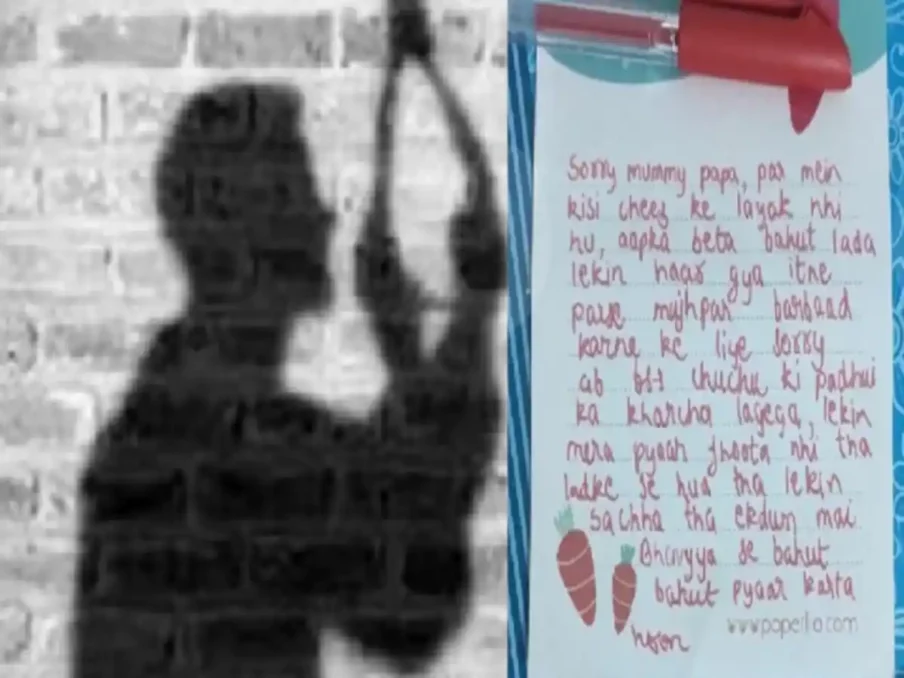 Sorry mummy papa, par mein
kisi cheez ke layak nhi
hu, aapka beta bahut lada
lekin haar gya itne
paise mujhpar barbaad
karne ke liye sorry
ab chuchu ki padhui
ka kharcha lagega, lekin
mera pyaar jhoota nhi tha
ladke se hua tha lekin
sachha tha ekdum mai
Bhavyya se bahut
bahut pyaar karta
hoon